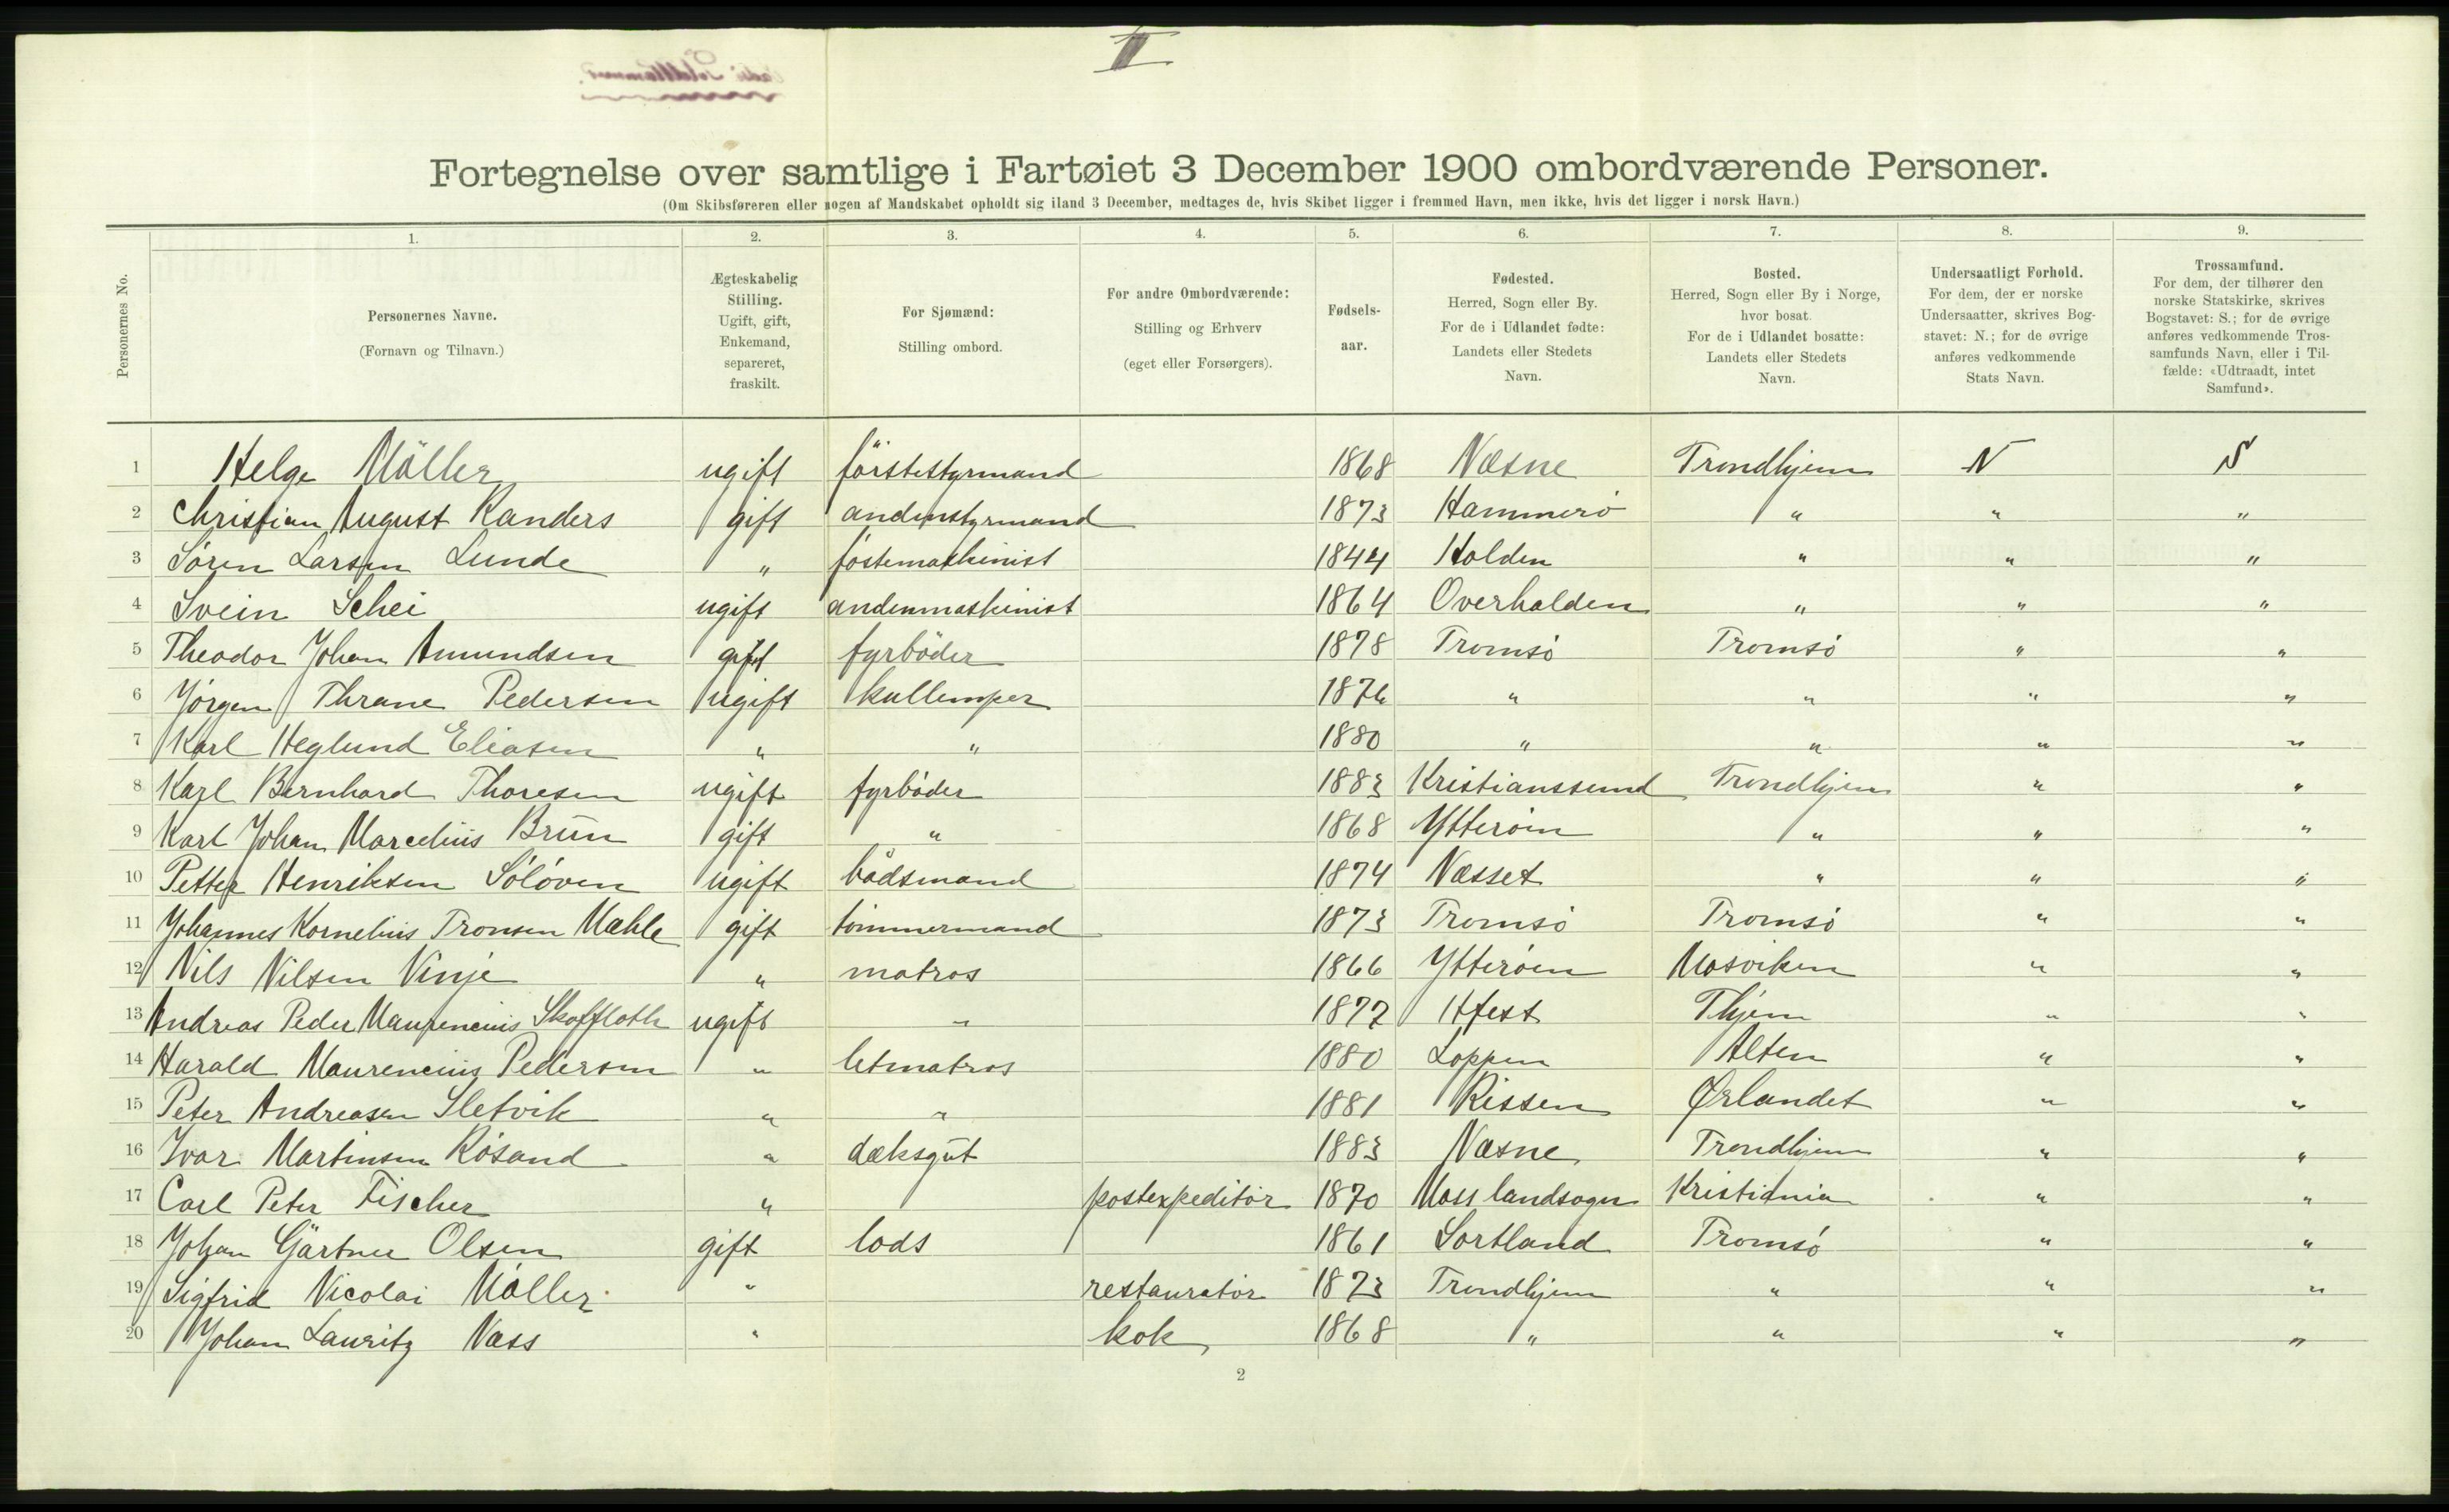 II
Fortegnelse over samtlige i Fartøiet 3 December 1900 ombordværende Personer.
(Om Skibsføreren eller nogen af Mandskabet opholdt sig iland 3 December, medtages de, hvis Skibet ligger i fremmed Havn, men ikke, hvis det ligger i norsk Havn.)
Personernes No.
1.
Personernes Navne.
(Fornavn og Tilnavn.)
2.
Ægteskabelig
Stilling.
Ugift, gift,
Enkemand,
separeret,
fraskilt.
3.
For Sjømænd:
Stilling ombord.
4.
For andre Ombordværende:
Stilling og Erhverv
(eget eller Forsørgers).
5.
Fødsels-
aar.
6.
Fødested.
Herred, Sogn eller By.
For de i Udlandet fødte:
Landets eller Stedets
Navn.
7.
Bosted.
Herred, Sogn eller By i Norge,
hvor bosat.
For de i Udlandet bosatte:
Landets eller Stedets
Navn.
8.
Undersaatligt Forhold.
For dem, der er norske
Undersaatter, skrives Bog-
stavet: N.; for de øvrige
anføres vedkommende
Stats Navn.
9.
Trossamfund.
For dem, der tilhører den
norske Statskirke, skrives
Bogstavet: S.; for de øvrige
anføres vedkommende Tros-
samfunds Navn, eller i Til-
fælde: «Udtraadt, intet
Samfund».
1 Helge Möller ugift förstestyrmand 1868 Næsne Trondhjem N S
2 Christian August Randers gift andenstyrmand 1873 Hammerö " " "
3 Sören Larsen Lunde " föstemaskinist 1844 Holden " " "
4 Svein Schei ugift andenmaskinist 1864 Overhalden " " "
5 Theodor Johan Amundsen gift fyrböder 1878 Tromsö Tromsö " "
6 Jörgen Thrane Pedersen ugift kullemper 1876 " " " "
7 Karl Heglund Eliasen " " 1880 " " " "
8 Karl Bernhard Thoresen ugift fyrböder 1883 Kristianssund Trondhjem " "
9 Karl Johan Marcelius Brun gift " 1868 Ytteröen " " "
10 Petter Henriksen Sölöven ugift bådsmand 1874 Næsset " " "
11 Johannes Kornelius Tronsen Mæhle gift tömmermand 1873 Tromsö Tromsö " "
12 Nils Nilsen Vinje " matros 1866 Ytteröen Mosviken " "
13 Andreas Peder Maurencius ugift " 1877 Hfest Thjem " "
14 Harald Maurencius Pedersen " letmatros 1880 Loppen Alten " "
15 Peter Andreasen Sletvik " " 1881 Rissen Ørlandet " "
16 Ivar Martinsen Rösand " dæksgut 1883 Næsne Trondhjem " "
17 Carl Peter Fischer " postexpeditör 1870 Moss landsogn Kristiania " "
18 Johan Gärtner Olsen gift lods 1861 Sortland Tromsö " "
19 Sigfrid Nicolai Möller " restauratör 1873 Trondhjem " " "
20 Johan Lauritz Næss " kok 1868 " " " "
2